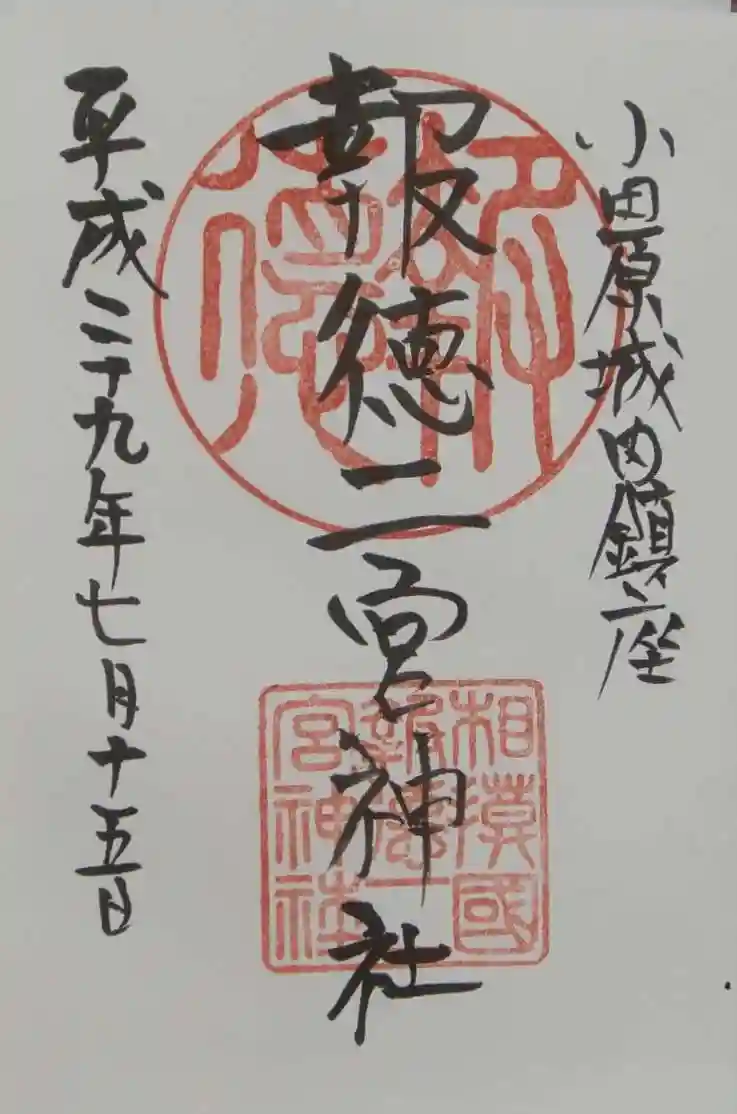 小田原城内鎮座
報徳二宮神社
平成二十九年七月十五日
報徳
相模國
報徳二
宮神社